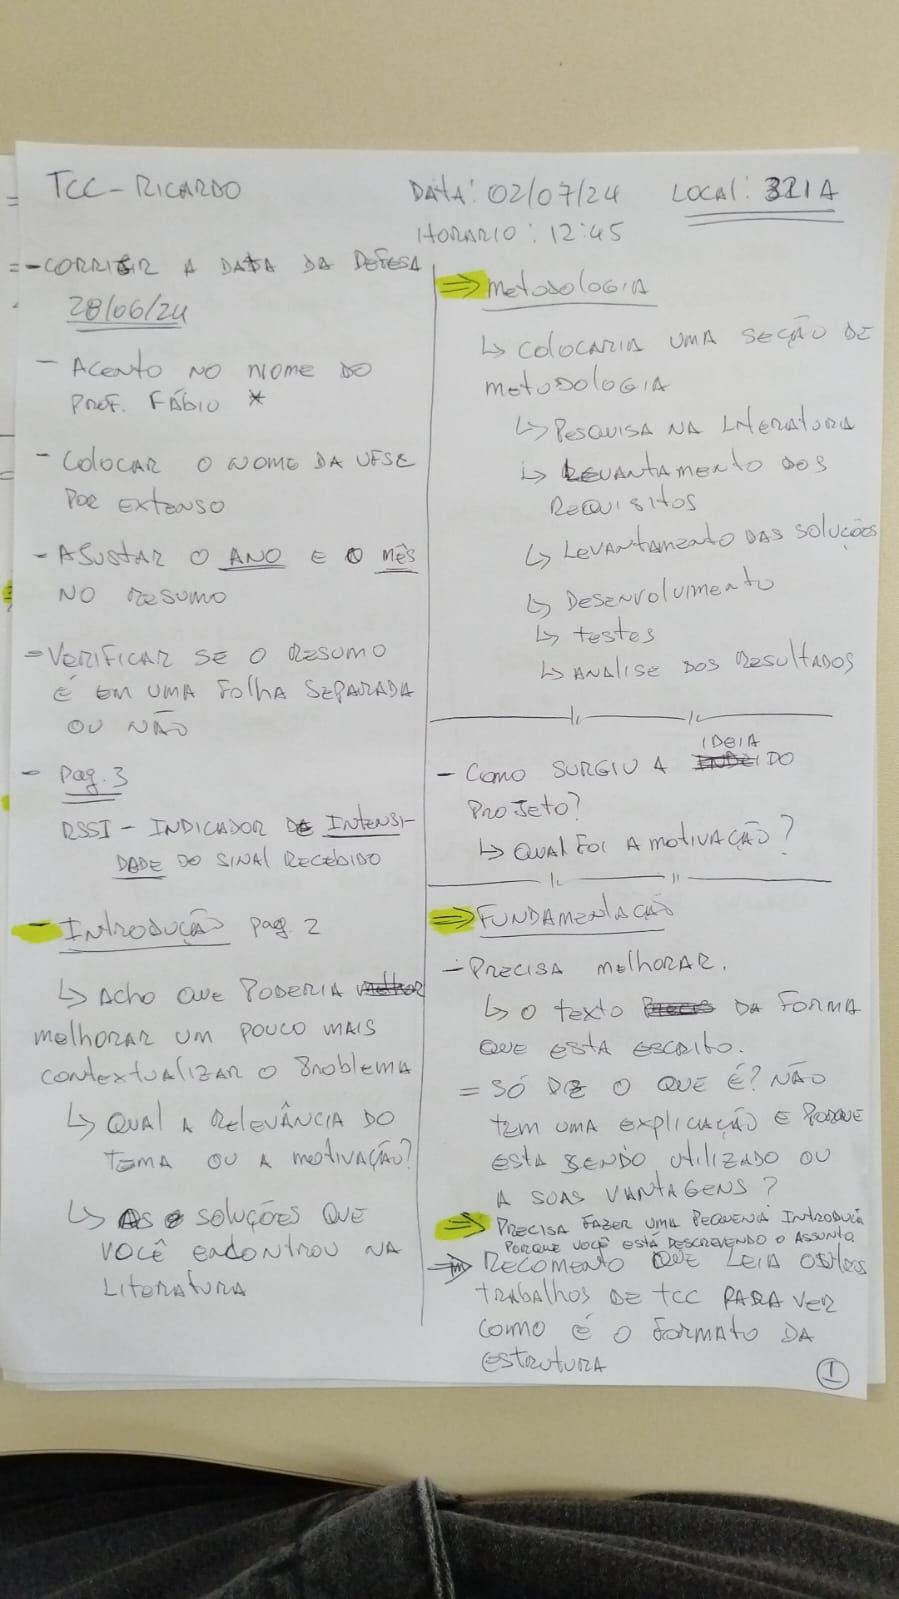 TCC - RICARDO
DATA: 02/07/24
LOCAL: 321A
HORARIO: 12:45
- CORRIGIR A DATA DA DEFESA
28/06/24
- ACENTO NO NOME DO
PROF. FÁBIO *
- COLOCAR O NOME DA UFSE
POR EXTENSO
- AJUSTAR O ANO E O MÊS
NO RESUMO
- VERIFICAR SE O RESUMO
É EM UMA FOLHA SEPARADA
OU NÃO
- Pag. 3
RSSI - INDICADOR DE INTENSI-
DADE DO SINAL RECEBIDO
- INTRODUÇÃO pag. 2
↳ ACHO QUE PODERIA
MELHORAR UM POUCO MAIS
CONTEXTUALIZAR O PROBLEMA
↳ QUAL A RELEVÂNCIA DO
TEMA OU A MOTIVAÇÃO?
↳ AS SOLUÇÕES QUE
VOCÊ ENCONTROU NA
LITERATURA
⇒ METODOLOGIA
↳ COLOCARIA UMA SEÇÃO DE
METODOLOGIA
↳ PESQUISA NA LITERATURA
↳ LEVANTAMENTO DOS
REQUISITOS
↳ LEVANTAMENTO DAS SOLUÇÕES
↳ DESENVOLVIMENTO
↳ TESTES
↳ ANALISE DOS RESULTADOS
- COMO SURGIU A IDEIA DO
PROJETO?
↳ QUAL FOI A MOTIVAÇÃO?
⇒ FUNDAMENTAÇÃO
- PRECISA MELHORAR.
↳ O TEXTO DA FORMA
QUE ESTA ESCRITO.
= SÓ DIZ O QUE É? NÃO
TEM UMA EXPLICAÇÃO E PORQUE
ESTA SENDO UTILIZADO OU
A SUAS VANTAGENS?
⇒ PRECISA FAZER UMA PEQUENA INTRODUÇÃ
PORQUE VOCÊ ESTÁ DESCREVENDO O ASSUNTO
⇒ RECOMENTO QUE LEIA OUTROS
TRABALHOS DE TCC PARA VER
COMO É O FORMATO DA
ESTRUTURA
1